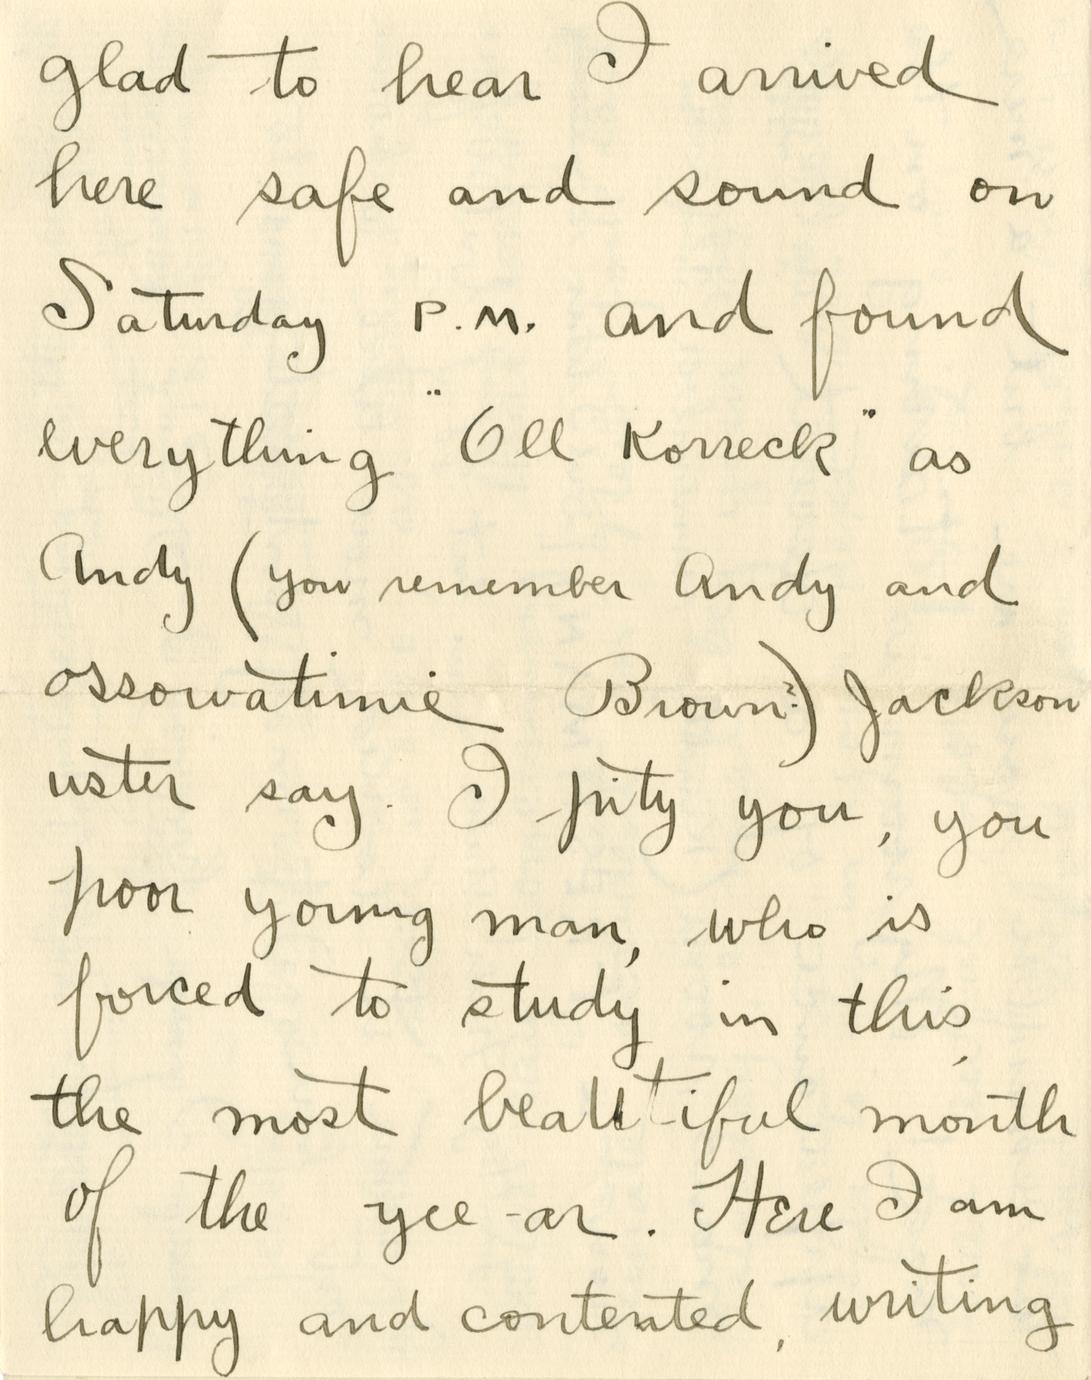 glad to hear I arrived
here safe and sound on
Saturday P.M. and found
everything "Oll Korreck" as
Andy (you remember Andy and
ossowatimie Brown?) Jackson
uster say. I pity you, you
poor young man, who is
forced to study in this,
the most beautiful month
of the yee-ar. Here I am
happy and contented, writing